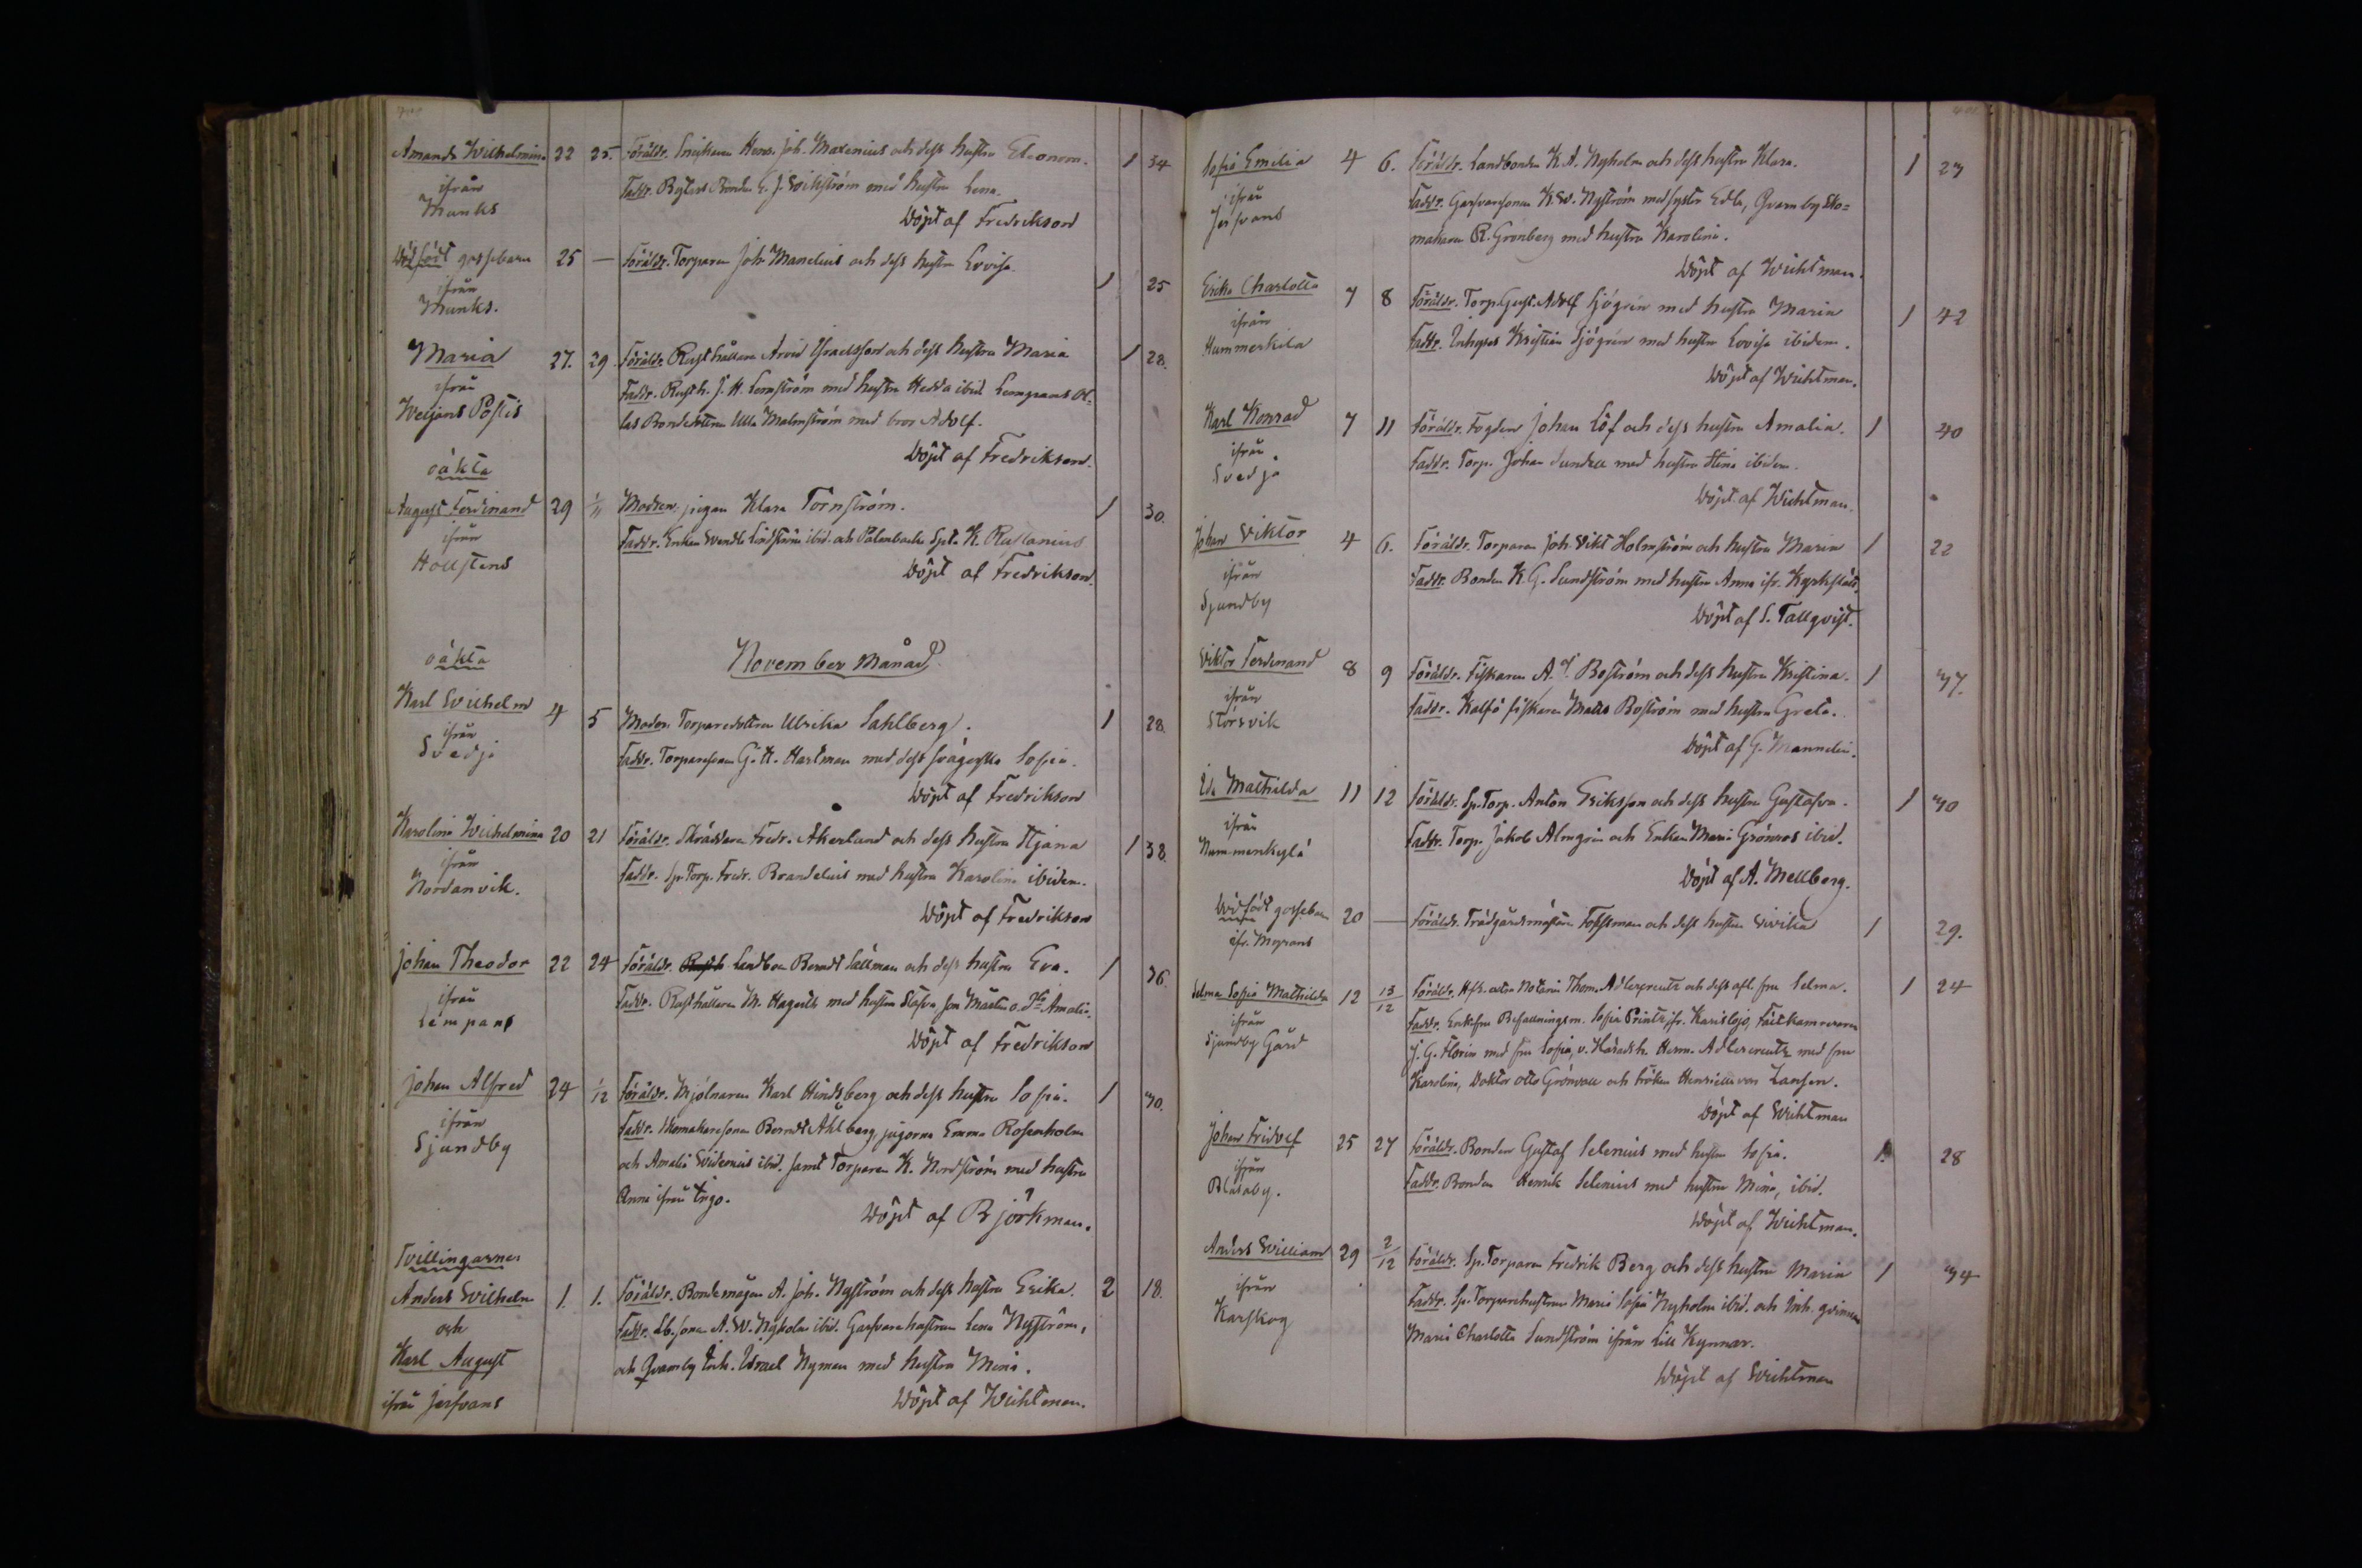 Amanda Wilhelmina 22 25. Föräldr. Snickaren Henr. Joh. Maxenius och dess hustru Eleonora. 1 34
ifrån Faddr. Bonden E. J. Wikström med hustru Lena.
Munks
Döpt af Fredrikson
Dödfödt gossebarn 25 — Föräldr. Torparen Joh. Manelius och dess hustru Lovisa. 1 25
ifrån
Munks.
Maria 27. 29 Föräldr. Rusthållaren Arvid Israelsson och dess hustru Maria 1 28.
ifrån Faddr. Rusth. J. H. Lemström med hustru Hedda ibid.
Weijars Postis Bondedottren Ulla Malmström med bror Adolf.
Döpt af Fredrikson.
oäkta
August Ferdinand 29 1/11 Modren: pigan Klara Törnström. 1 30.
ifrån Faddr. Enkan Wendla Lindström ibid. och
Hollstens
Döpt af Fredrikson.
November Månad.
oäkta
Karl Wilhelm 4 5 Modren Torparedottren Ulrika Sahlberg. 1 28.
ifrån Faddr. Torparesonen G. A. Hartman med dess svägerska Sofia.
Svedja
Döpt af Fredrikson
Karolina Wilhelmina 20 21 Föräldr. Skräddaren Fredr. Åkerlund och dess hustru Stjana 1 38.
ifrån Faddr. Sp. Torp. Fredr. Brandelius med hustru Karolina ibidem.
Nordanvik.
Döpt af Fredrikson
Johan Theodor 22 24 Föräldr. Landbon Berndt Sållman och dess hustru Eva. 1 36.
ifrån Faddr. Rusthållaren M. Hagert med hustru
Lempans
Döpt af Fredrikson
Johan Alfred 24 1/12 Föräldr. Mjölnaren Karl Hindsberg och dess hustru Sofia. 1 30.
ifrån Faddr. Skomakaresonen Berndt Ahlberg, pigorna Emma Rosenholm
Sjundby och Amalia Widenius ibid. samt Torparen K. Nordström med hustru
Anna ifrån
Döpt af Björkman.
Tvillingarne
Anders Wilhelm 1. 1. Föräldr. Bondemågen A. Joh. Nyström och dess hustru Erika. 2 18.
och Faddr. Lb. sonen A. W. Nyholm ibid. Garfvare hustrun Lena Nyström,
Karl August och Qvarnby Inh. Israel Nyman med hustru Mina.
ifrån Jerfvans Döpt af Wichtman.
Sofia Emilia 4 6. Föräldr. Landbonden K. A. Nyholm och dess hustru Klara. 1 27
ifrån Faddr. Garfvaresonen K. W. Nyström med syster Edla, Qvarnby Sko-
Jerfvans makaren R. Grönberg med hustru Karolina.
Döpt af Wichtman.
Erika Charlotta 7 8 Föräldr. Torp. Gust. Adolf Sjögrén med hustru Maria 1 42
ifrån Faddr. Inhyses Kristian Sjögrén med hustru Lovisa ibidem.
Hummerkila
Döpt af Wichtman.
Karl Konrad 7 11 Föräldr. Fogden Johan Löf och dess hustru Amalia. 1 40
ifrån Faddr. Torp. Johan Sundell med hustru Stina ibidem.
Svedja
Döpt af Wichtman.
Johan Viktor 4 6. Föräldr. Torparen Joh. Vikt Holmström och hustru Maria 1 22
ifrån Faddr. Bonden K. G. Sundström med hustru Anna ifr. Kyrkslätt.
Sjundby
Döpt af S. Tallqvist.
Viktor Ferdinand 8 9 Föräldr. Fiskaren A. J. Boström och dess hustru Kristina. 1 37.
ifrån Faddr. Kalfö fiskaren Matts Boström med hustru Greta.
Störsvik
Döpt af G. Mannelin.
Ida Mathilda 11 12 Föräldr. Sp. Torp. Anton Eriksson och dess hustru Gustafva. 1 30
ifrån Faddr. Torp. Jakob Almgrén och Enkan Maria Grönroos ibid.
Nummenkylä
Döpt af A. Mellberg.
Dödfödt gossebarn 20 — Föräldr. Trädgårdsmästaren Forssman och dess hustru Ulrika 1 29.
ifr. Myrans
Selma Sofia Mathilda 12 13/12 Föräldr. Hfr. extra Notarien Thom. Adlercreutz och dess afl. fru Selma. 1 24
ifrån Faddr. Enkefru Befallningsm. Sofia Printz ifr. Karislojo, Fältkamreraren
Sjundby Gård J. G. Florin med fru Sofia, v. Häradsh. Herm. Adlercreutz med fru
Karolina, Doktor Otto Grönvall och fröken Henriette von Zansen.
Döpt af Wichtman
Johan Fridolf 25 27 Föräldr. Bonden Gustaf Selenius med hustru Sofia. 1. 28
ifrån Faddr. Bonden Henrik Selenius med hustru Mina, ibid.
Blåsaby.
Döpt af Wichtman.
Anders William 29 2/12 Föräldr. Sp. Torparen Fredrik Berg och dess hustru Maria 1 34
ifrån Faddr. Sp. Torparehustrun Maria Sofia Nyholm ibid. och Inh. qvinnan
Karskog Maria Charlotta Sundström ifrån Lill Kynnar.
Döpt af Wichtman